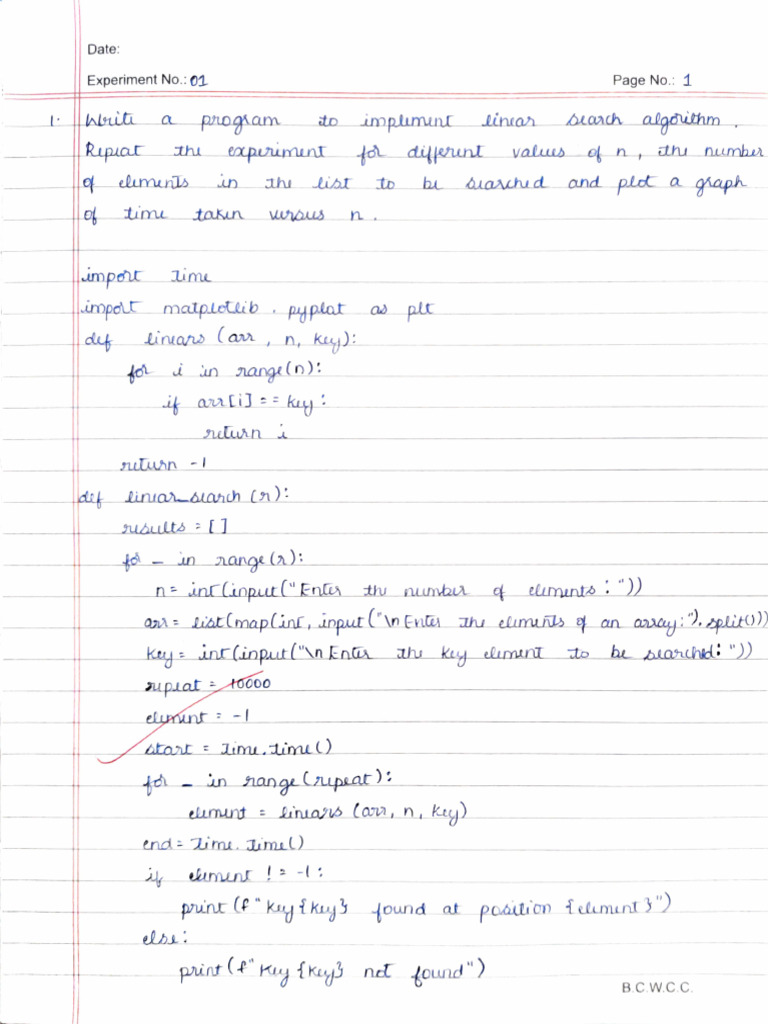 Date:
Experiment No.: 01 Page No.: 1
1. Write a program to implement linear search algorithm.
Repeat the experiment for different values of n, the number
of elements in the list to be searched and plot a graph
of time taken versus n.
import time
import matplotlib.pyplot as plt
def linears (arr, n, key):
for i in range(n):
if arr[i] == key:
return i
return -1
def linear_search (r):
results = []
for _ in range(r):
n = int(input("Enter the number of elements: "))
arr = list(map(int, input("\n Enter the elements of an array:").split()))
key = int(input("\n Enter the key element to be searched: "))
repeat = 10000
element = -1
start = time.time()
for _ in range(repeat):
element = linears (arr, n, key)
end = time.time()
if element != -1:
print (f"key {key} found at position {element}")
else:
print (f"key {key} not found")
B.C.W.C.C.